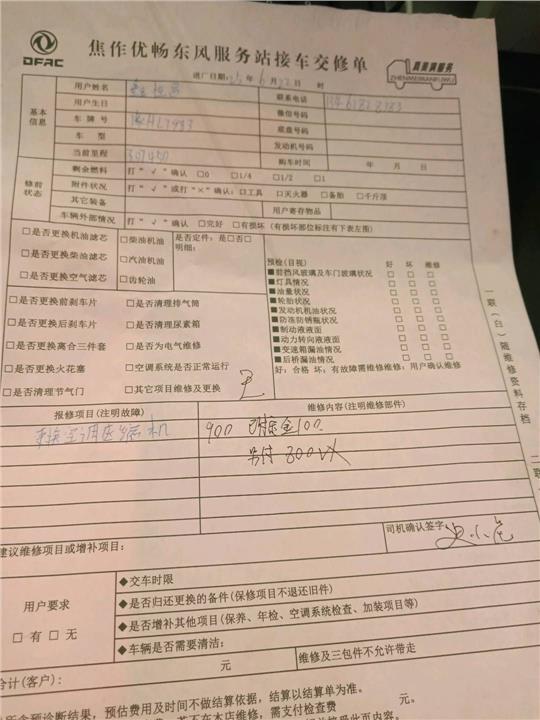 DFAC
焦作优畅东风服务站接车交修单
真美满服务
ZHENMEIMANFUWU
进厂日期: 25 年 6 月 22 日 时
基本信息
用户姓名 联系电话
用户生日 微信号码
车牌号 底盘号码
车型 发动机号码
当前里程 307450 购车时间 年 月 日
修前状态
剩余燃料 打“√”确认 □0 □1/4 □1/2 □1
附件状况 打“√”或打“×”确认: □工具 □灭火器 □备胎 □千斤顶
其它装备 用户寄存物品
车辆外部情况 打“√”确认 □完好 □有损坏 (有损坏部位标注有下表左图)
□是否更换机油滤芯 □柴油机油 是否定件: □是□否
□是否更换柴油滤芯 □汽油机油 明细:
□是否更换空气滤芯 □齿轮油
□是否更换前刹车片 □是否清理排气筒
□是否更换后刹车片 □是否清理尿素箱
□是否更换离合三件套 □是否为电气维修
□是否更换火花塞 □空调系统是否正常运行
□是否清理节气门 □其它项目维修及更换
预检(目视) 好 坏 维修
■前挡风玻璃及车门玻璃状况 □ □ □
■灯具情况 □ □ □
■油量状况 □ □ □
■轮胎状况 □ □ □
■发动机机油状况 □ □ □
■防冻防锈瓶状况 □ □ □
■制动液液面 □ □ □
■动力转向液液面 □ □ □
■变速箱漏油情况 □ □ □
■后桥漏油情况 □ □ □
好: 合格 坏: 有故障需维修维修: 用户确认维修
一联(白)随维修资料存档
二联
报修项目(注明故障) 维修内容(注明维修部件)
更换空调压缩机 900 已付定金100
另付 800
司机确认签字
建议维修项目或增补项目:
用户要求
□有 □无
◆交车时限
◆是否归还更换的备件(保修项目不退还旧件)
◆是否增补其他项目(保养、年检、空调系统检查、加装项目等)
◆车辆是否需要清洁:
合计(客户): 元 维修及三包件不允许带走
所含预诊断结果, 预估费用及时间不做结算依据, 结算以结算单为准。
若不在本店维修, 需支付检查费 元。